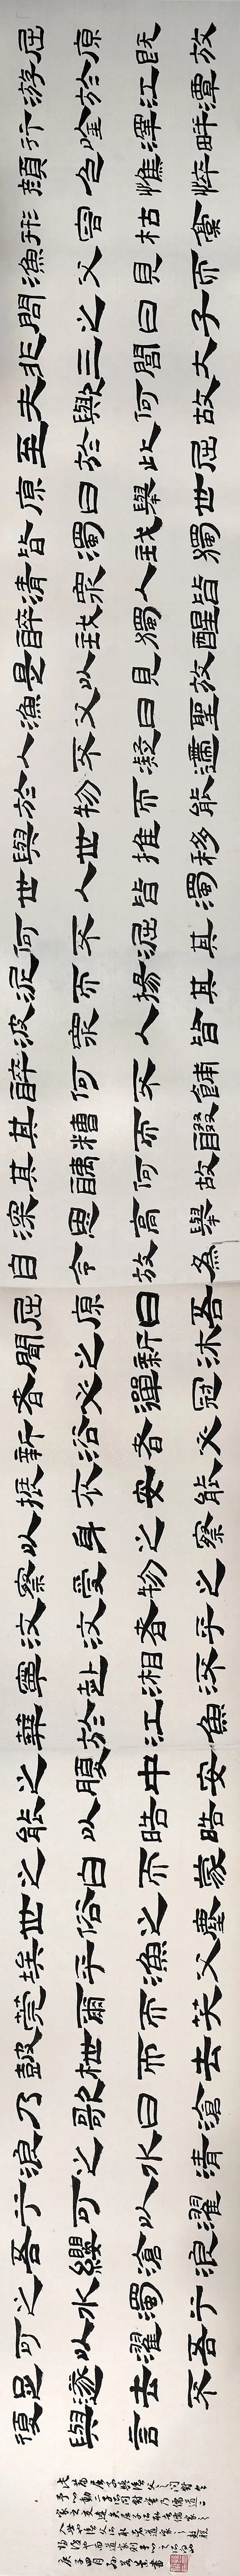 屈原既放
游於江潭
行唫澤畔
顏色憔悴
形容枯槁
漁父見而
問之曰子
非三閭大
夫與何故
至於此屈
原曰舉世
皆濁我獨
清眾人皆
醉我獨醒
是以見放
漁父曰聖
人不凝滯
於物而能
與世推移
世人皆濁
何不淈其
泥而揚其
波眾人皆
醉何不餔
其糟而歠
其醨何故
深思高舉
自令放為
屈原曰吾
聞之新沐
者必彈冠
新浴者必
振衣安能
以身之察
察受物之
汶汶者乎
寧赴湘流
葬於江魚
之腹中安
能以晧晧
之白而蒙
世俗之塵
埃乎漁父
莞爾而笑
鼓枻而去
乃歌曰滄
浪之水清
兮可以濯
吾纓滄浪
之水濁兮
可以濯吾
足遂去不
復與言
庚子四月